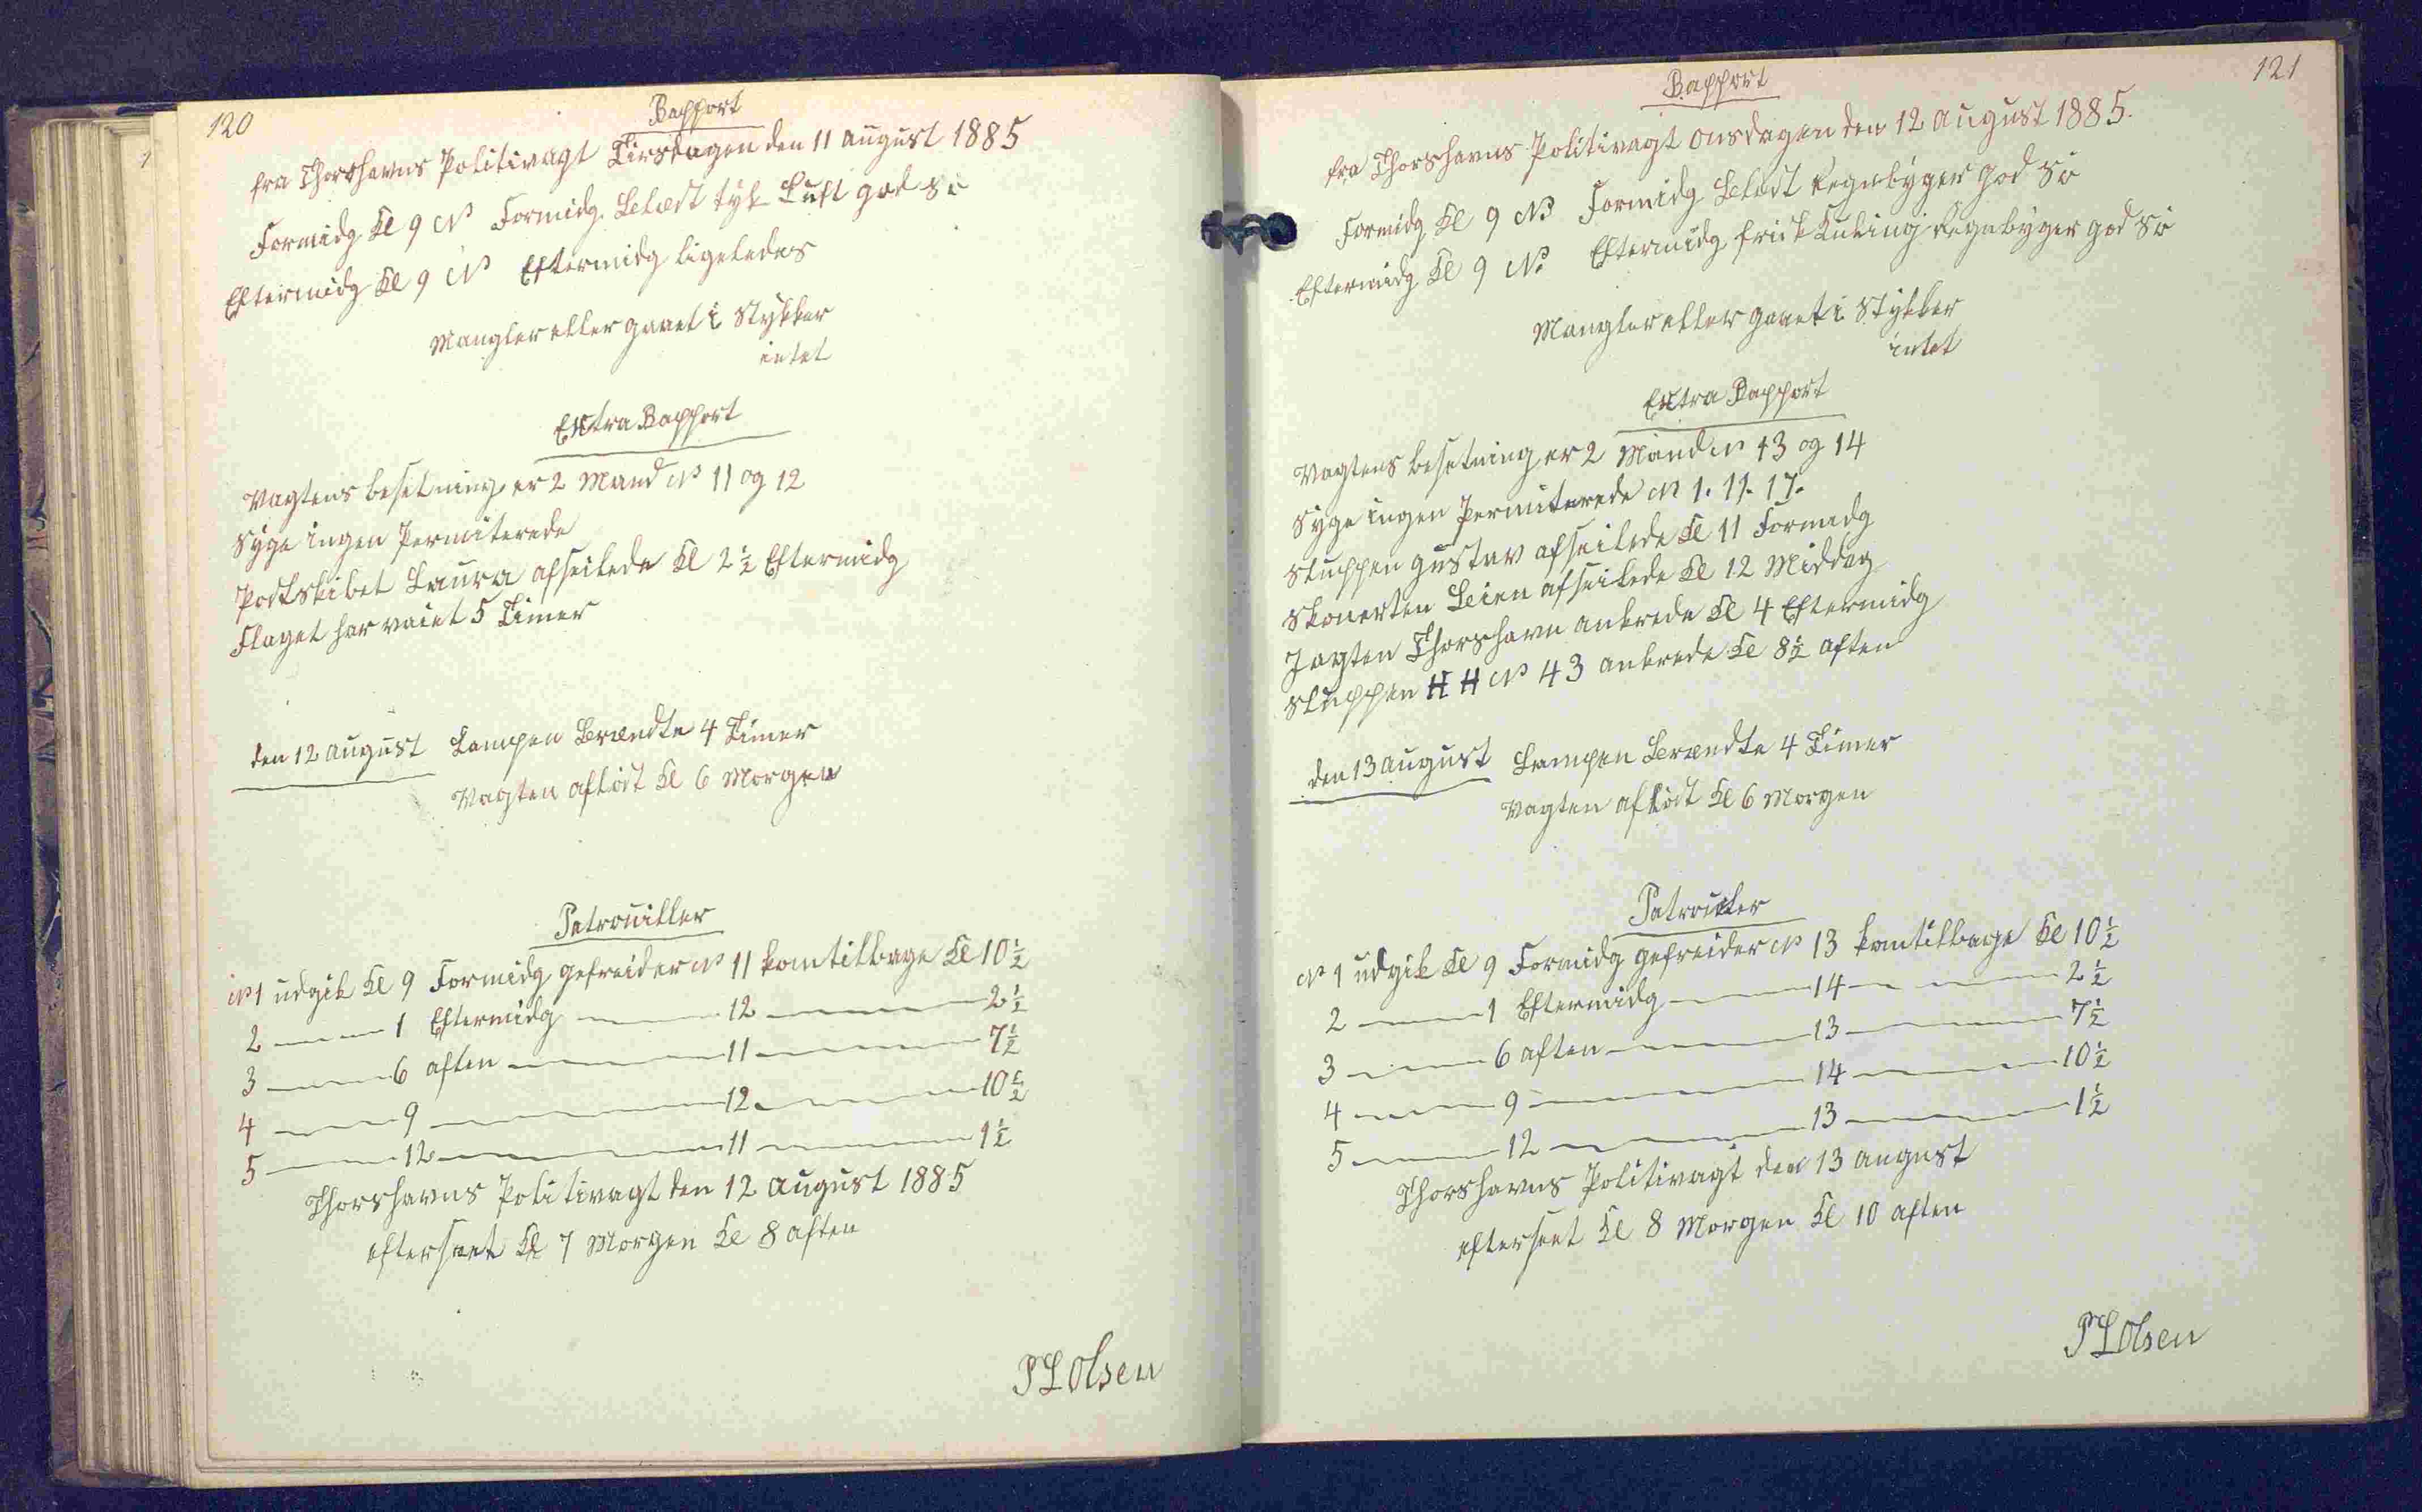 120
Rapport
fra Thorshavns Politivagt Tirsdagen den 11 august 1885
Formidg Kl 9 No Formidg Belædt tyk Luft god Sö
Eftermidg Kl 9 No Eftermidg ligeledes
Mangler eller gaaet i Stykker
intet
Extra Rapport
Vagtens besetning er 2 Mand No 11 og 12
Syge ingen Permiterede
Postskibet Laura afseilede Kl 2½ Eftermidg
Flaget har vaiet 5 Timer
den 12 august Lampen Brændte 4 Timer
Vagten aflöst Kl 6 Morgen
Patrouiller
No 1 udgik Kl 9 Formidg gefreider No 11 kom tilbage Kl 10½
2 — 1 Eftermidg — 12 — 2½
3 — 6 aften — 11 — 7½
4 — 9 — 12 — 10½
5 — 12 — 11 — 1½
Thorshavns Politivagt den 12 august 1885
efterseet Kl 7 Morgen Kl 8 aften
P L Olsen
121
Rapport
fra Thorshavns Politivagt onsdagen den 12 august 1885.
Formidg Kl 9 No Formidg Belædt Regnbyger god Sö
Eftermidg Kl 9 No Eftermidg frisk Kuling Regnbyger god Sö
Mangler eller gaaet i Stykker
intet
Extra Rapport
Vagtens besetning er 2 Mand No 13 og 14
Syge ingen Permiterede No 1. 11. 17.
Sluppen Gustav afseilede Kl 11 Formidg
Skonerten afseilede Kl 12 Middag
Jagten Thorshavn ankrede Kl 4 Eftermidg
Sluppen H H No 43 ankrede Kl 8½ aften
den 13 august Lampen Brændte 4 Timer
Vagten aflöst Kl 6 Morgen
Patrouller
No 1 udgik Kl 9 Formidg gefreider No 13 kom tilbage Kl 10½
2 — 1 Eftermidg — 14 — 2½
3 — 6 aften — 13 — 7½
4 — 9 — 14 — 10½
5 — 12 — 13 — 1½
Thorshavns Politivagt den 13 august
efterseet Kl 8 Morgen Kl 10 aften
P L Olsen